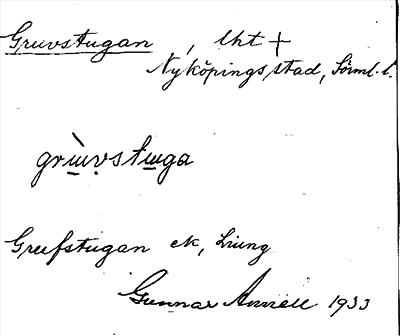 Gruvstugan, lht +
Nyköpings stad, Sörml. l.
grùvstuga
Grufstugan ek, Ljung
Gunnar Annell 1933